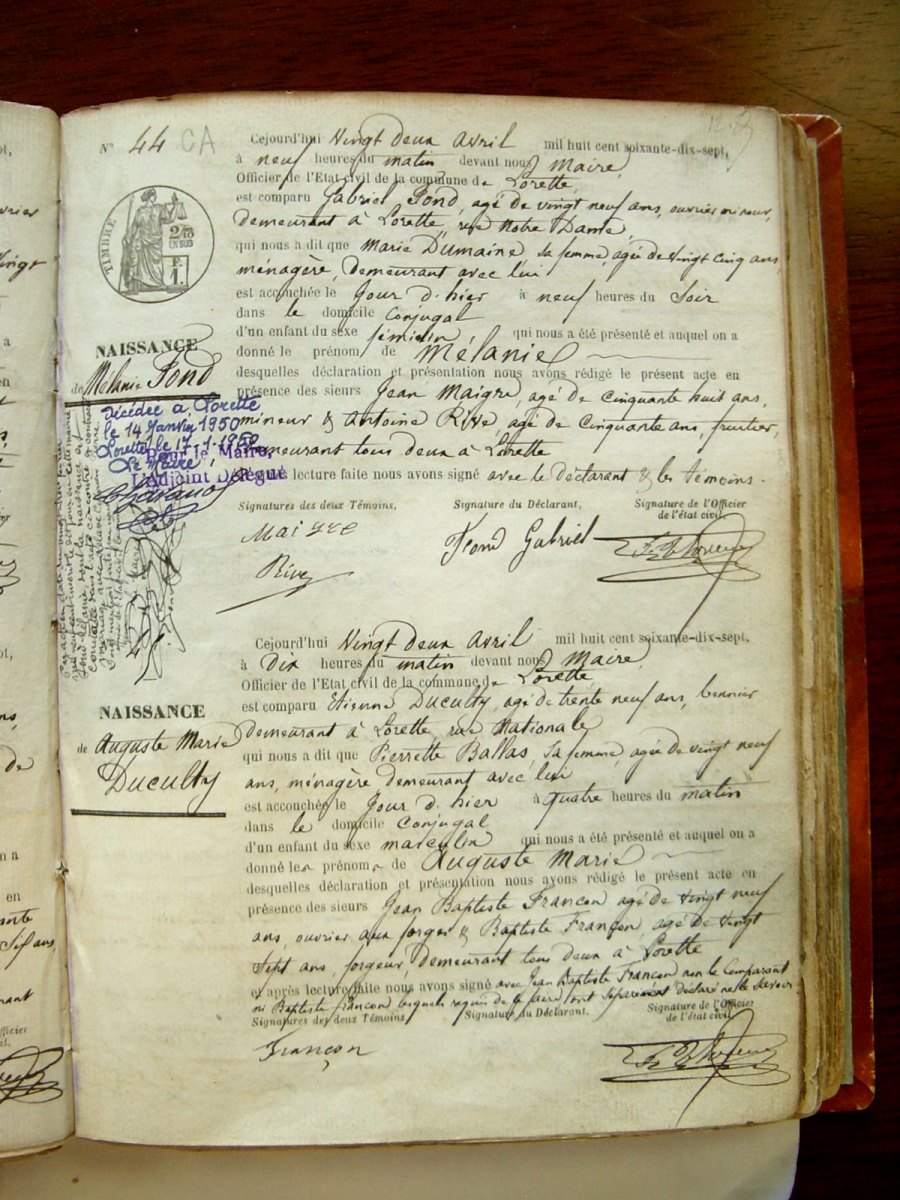 N° 44 CA
TIMBRE
2/10
EN SUS
F.
1.
Cejourd'hui Vingt deux Avril mil huit cent soixante-dix-sept,
à neuf heures du matin devant nous Maire,
Officier de l'Etat civil de la commune de Lorette,
est comparu Gabriel Fond, agé de vingt neuf ans, ouvrier mineur,
demeurant à Lorette, rue Notre Dame,
qui nous a dit que Marie Dumaine, sa femme, agée de Vingt Cinq ans
ménagère, demeurant avec lui
est accouchée le Jour d'hier à neuf heures du Soir
dans le domicile Conjugal
d'un enfant du sexe féminin qui nous a été présenté et auquel on a
donné le prénom de Mélanie
desquelles déclaration et présentation nous avons rédigé le présent acte en
présence des sieurs Jean Maigre, agé de Cinquante huit ans,
mineur & Antoine Rive, agé de Cinquante ans, fruitier,
demeurant tous deux à Lorette
lecture faite nous avons signé avec le Déclarant & les témoins.
Signatures des deux Témoins, Signature du Déclarant, Signature de l'Officier
de l'état civil,
Maigre
Rive
Fond Gabriel
NAISSANCE
de Mélanie Fond
Décédée à Lorette
le 14 Janvier 1950
Lorette le 17-1-1950
Le Maire,
Pour le Maire
L'Adjoint Délégué
Cejourd'hui Vingt deux Avril mil huit cent soixante-dix-sept,
à Dix heures du matin devant nous Maire,
Officier de l'Etat civil de la commune de Lorette
est comparu Etienne Duculty, agé de trente neuf ans, bennier
demeurant à Lorette, rue Nationale
qui nous a dit que Pierrette Ballas, sa femme, agée de vingt neuf
ans, ménagère demeurant avec lui
est accouchée le Jour d'hier à quatre heures du matin
dans le domicile Conjugal
d'un enfant du sexe masculin qui nous a été présenté et auquel on a
donné les prénoms de Auguste Marie
desquelles déclaration et présentation nous avons rédigé le présent acte en
présence des sieurs Jean Baptiste Francon agé de Vingt neuf
ans, ouvrier aux forges & Baptiste Françon, agé De Vingt
Sept ans, forgeur, demeurant tous deux à Lorette
et après lecture faite nous avons signé avec Jean Baptiste Francon non le Comparant
ni Baptiste francon lesquels requis de le faire ont Séparément Déclaré ne le Savoir
Signatures des deux Témoins, Signature du Déclarant. Signature de l'Officier
de l'état civil,
Françon
NAISSANCE
de Auguste Marie
Duculty